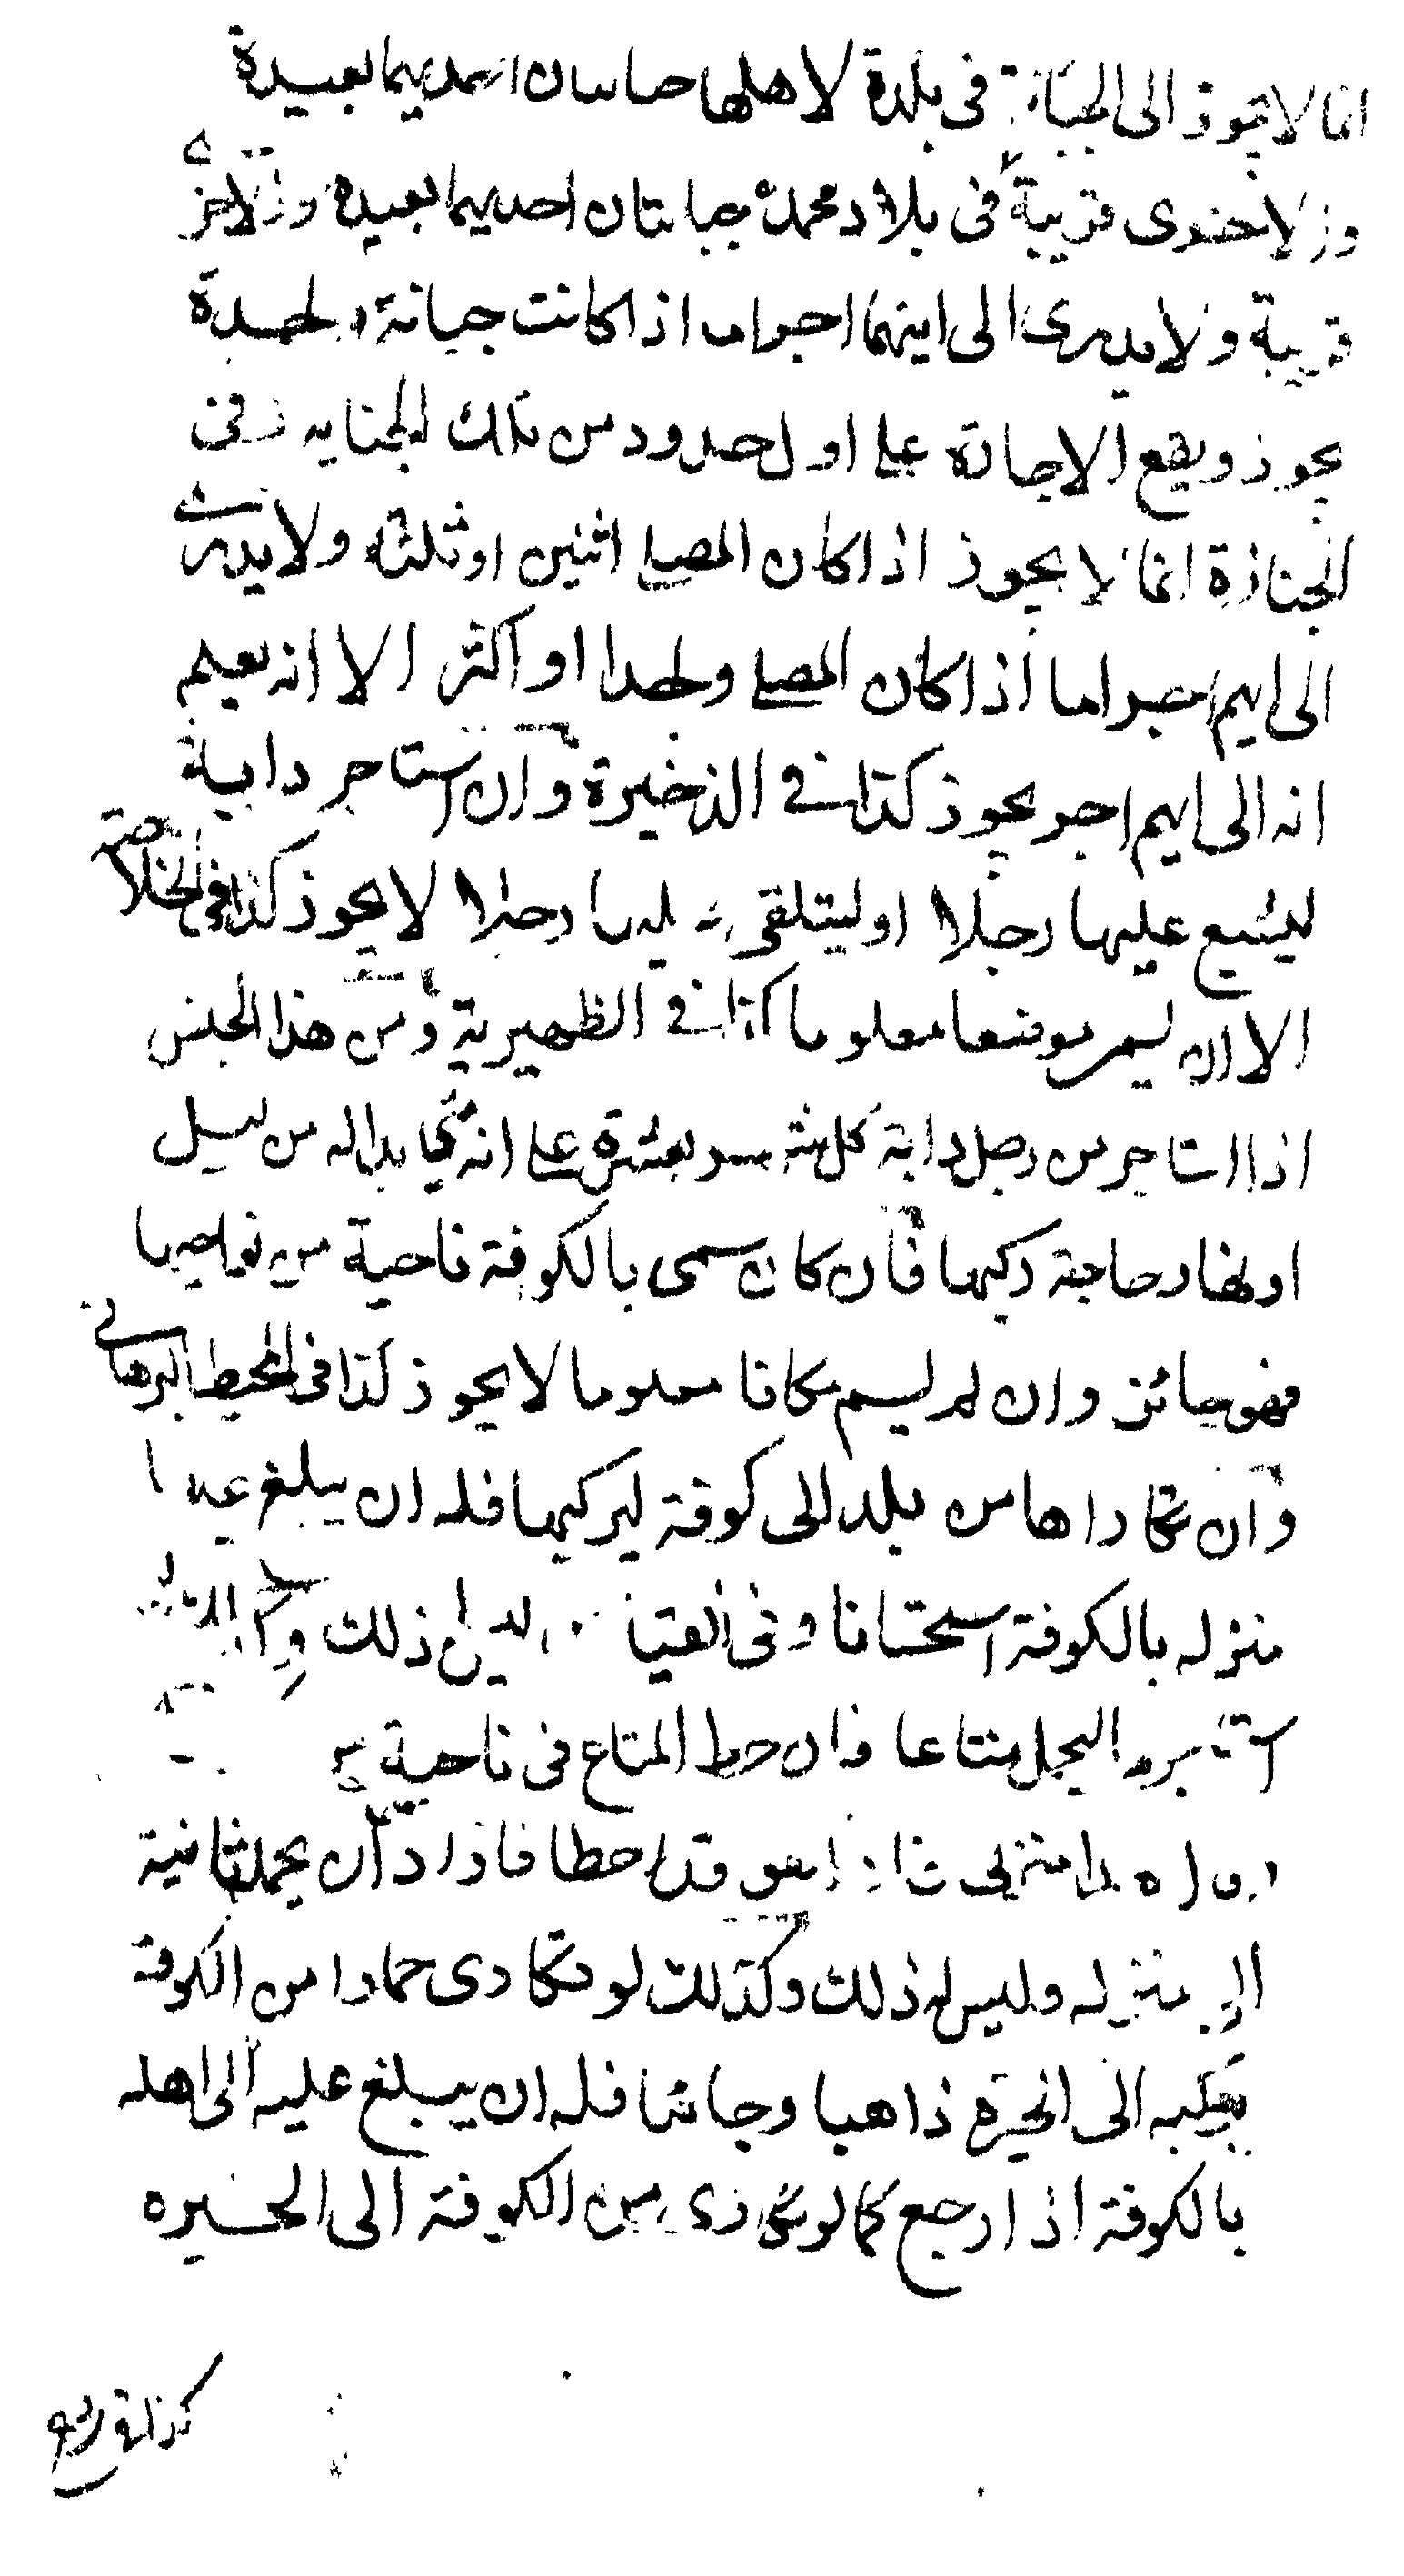 انما لا يجوز الى الجبانة في بلدة لاهلها جبانتان احديهما بعيدة
والاخرى قريبة في بلاد محمد جبانتان احديهما بعيدة والاخرى
قريبة ولا يدرى الى اينهما اجر اما اذا كانت جبانة واحدة
يجوز ويقع الاجارة على اول حدود من تلك الجبانه وفى
الجنازة انما لا يجوز اذا كان المصلى اثنين او ثلثة ولا يدرى
الى ايهم اجر اما اذا كان المصلى واحدا او اكثر الا انه يعلم
انه الى ايهم اجر يجوز كذا في الذخيرة وان استاجر دابة
ليشيع عليها رجلا او ليتلقى عليها رجلا لا يجوز كذا في الخلاصة
الا ان يسمى موضعا معلوما كذا في الظهيرية ومن هذا الجنس
اذا استاجر من رجل دابة كل شهر بعشرة على انه متى بدا له من ليل
او نهار حاجة ركبها فان كان سمى بالكوفة ناحية من نواحيها
فهو جائز وان لم يسم مكانا معلوما لا يجوز كذا في المحيط البرهاني
وان تكاراها من بلد الى كوفة ليركبها فله ان يبلغ عليها
منزله بالكوفة استحسانا وفى القياس ليس له ذلك
ليحمل متاعا فان حط المتاع فى ناحية من
هذا منزلى فاذا هو قد اخطا فاراد ان يحمل ثانية
الى منزله وليس له ذلك وكذلك لو تكارى حمارا من الكوفة
يركبه الى الحيرة ذاهبا وجائيا فله ان يبلغ عليه الى اهله
بالكوفة اذا رجع كما لو تكارى من الكوفة الى الحيره